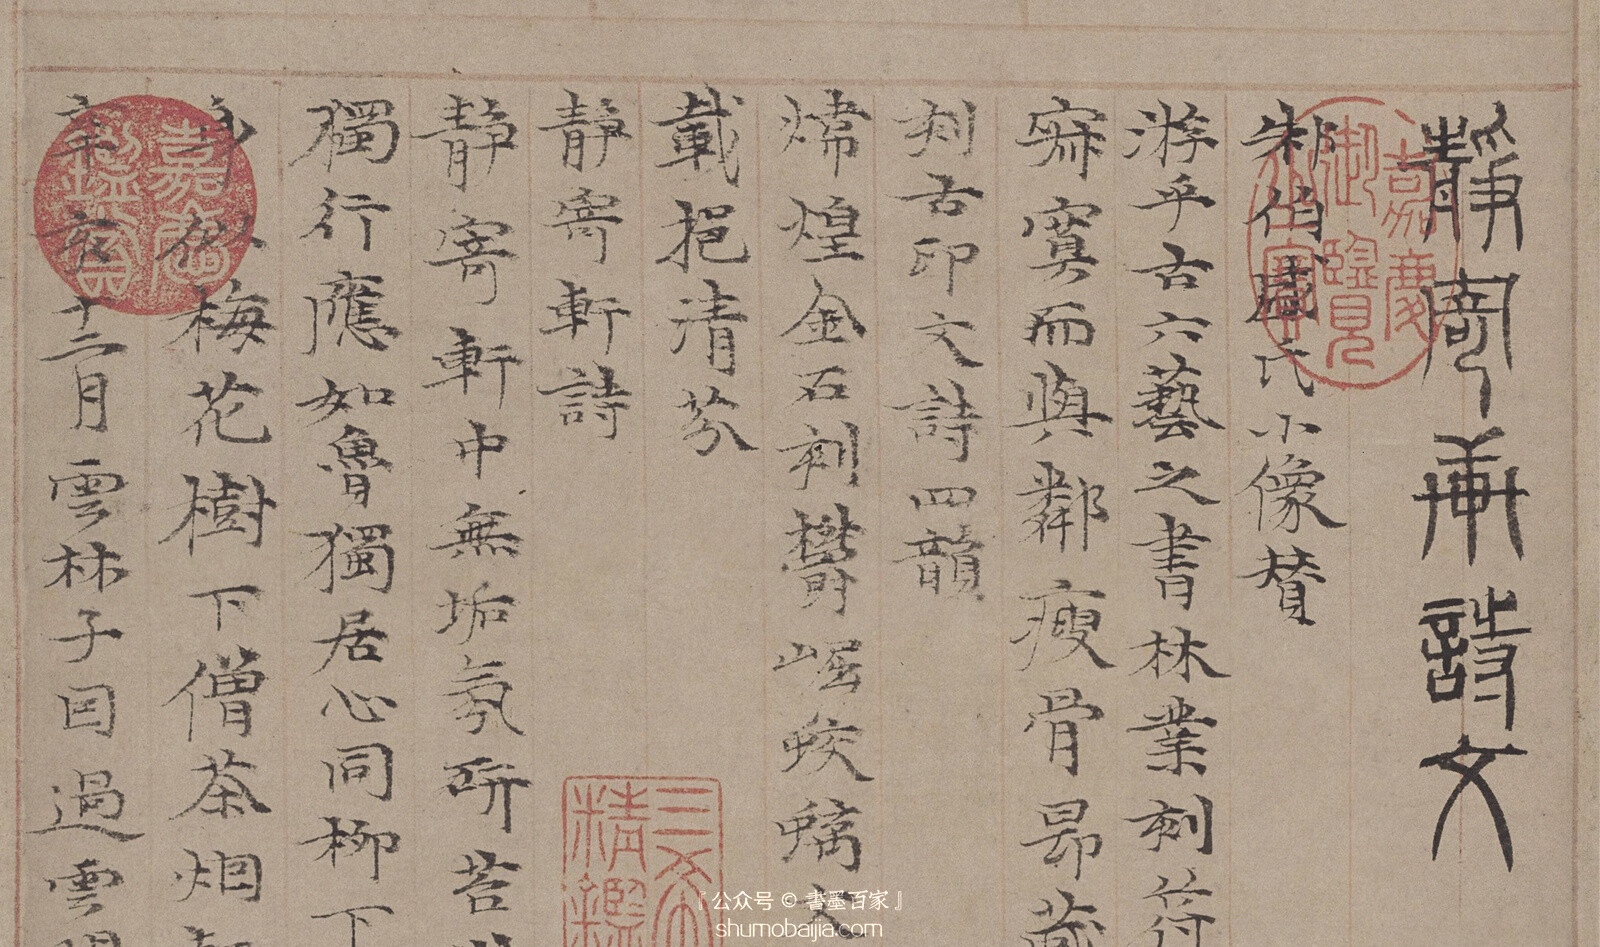 靜寄軒詩文
朱伯盛氏小像贊
游乎古六藝之書林業刻符
寂寞而與鄰瘦骨昂藏
刻古印文詩四韻
煒煌金石刻鬱崛蛟螭文
載挹清芬
靜寄軒詩
靜寄軒中無垢氛研苔
獨行應如魯獨居心同柳下
身似梅花樹下僧茶烟軒
辛亥十二月雲林子因過雲
嘉慶御覽之寶
嘉慶鑑賞
三希 精鑑
『公众号 © 書墨百家』
shumobaijia.com